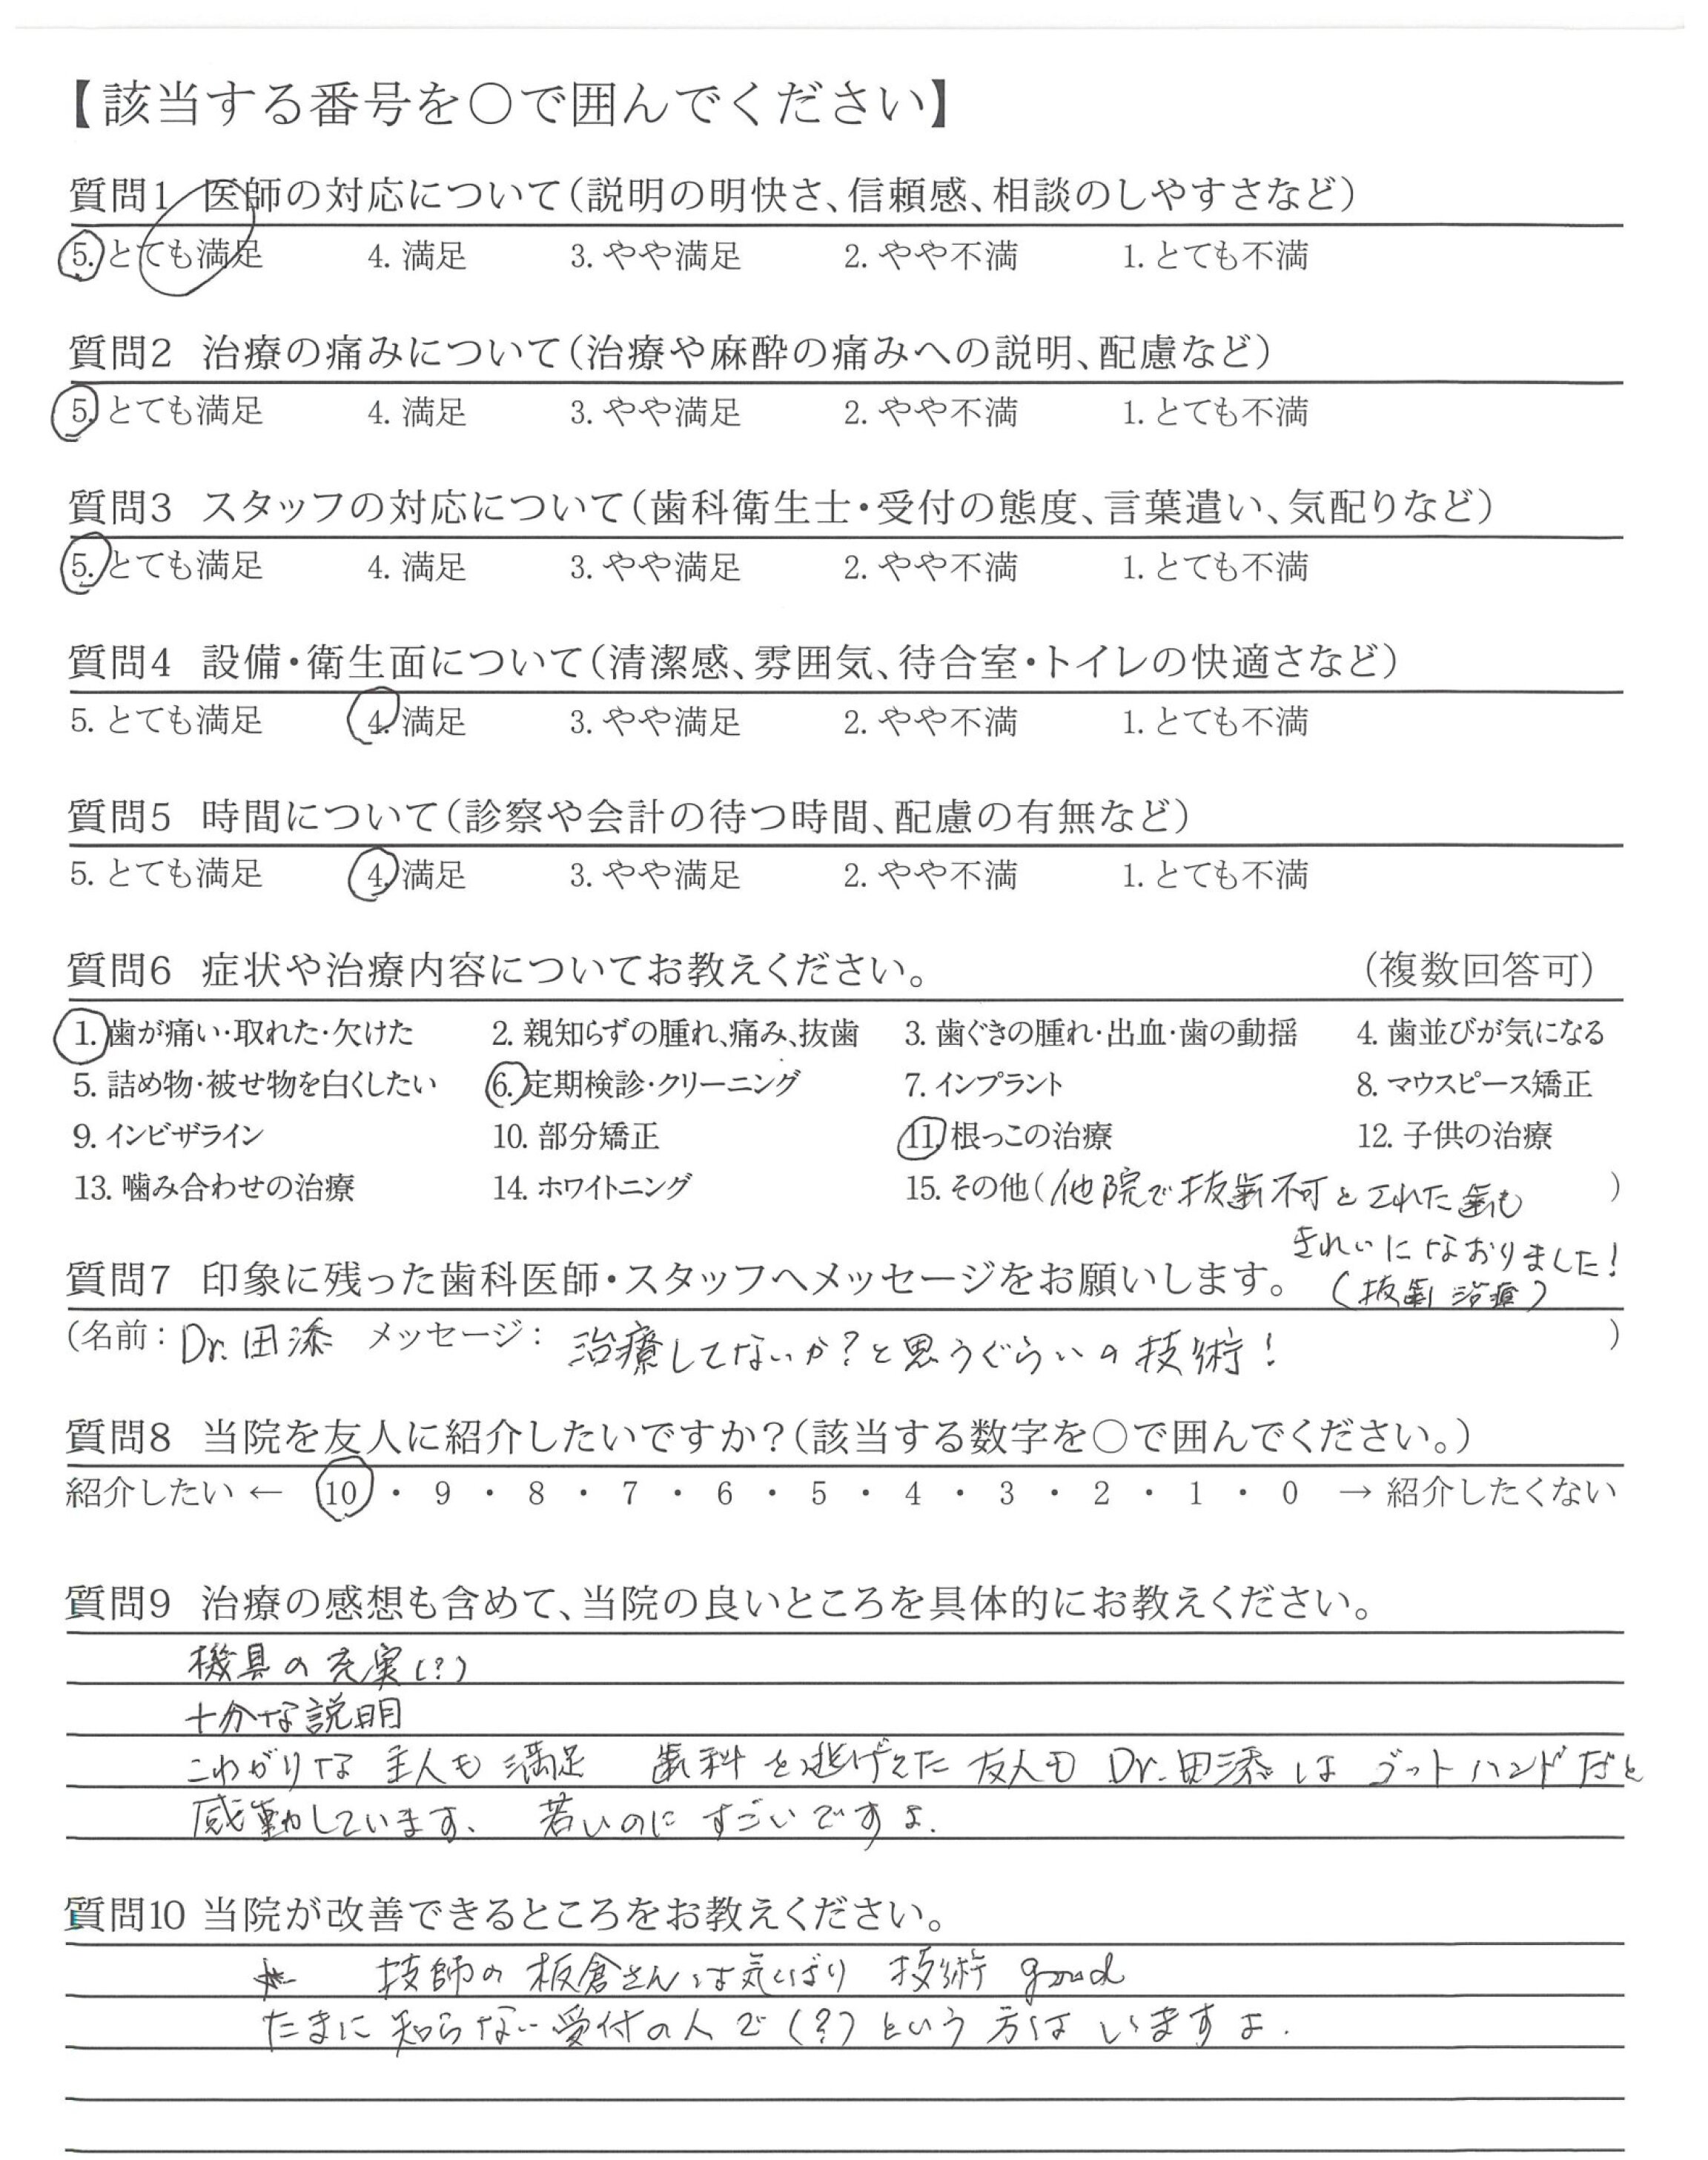 【該当する番号を○で囲んでください】
質問1 医師の対応について(説明の明快さ、信頼感、相談のしやすさなど)
5. とても満足 4. 満足 3. やや満足 2. やや不満 1. とても不満
質問2 治療の痛みについて(治療や麻酔の痛みへの説明、配慮など)
5. とても満足 4. 満足 3. やや満足 2. やや不満 1. とても不満
質問3 スタッフの対応について(歯科衛生士・受付の態度、言葉遣い、気配りなど)
5. とても満足 4. 満足 3. やや満足 2. やや不満 1. とても不満
質問4 設備・衛生面について(清潔感、雰囲気、待合室・トイレの快適さなど)
5. とても満足 4. 満足 3. やや満足 2. やや不満 1. とても不満
質問5 時間について(診察や会計の待つ時間、配慮の有無など)
5. とても満足 4. 満足 3. やや満足 2. やや不満 1. とても不満
質問6 症状や治療内容についてお教えください。 (複数回答可)
1. 歯が痛い・取れた・欠けた 2. 親知らずの腫れ、痛み、抜歯 3. 歯ぐきの腫れ・出血・歯の動揺 4. 歯並びが気になる
5. 詰め物・被せ物を白くしたい 6. 定期検診・クリーニング 7. インプラント 8. マウスピース矯正
9. インビザライン 10. 部分矯正 11. 根っこの治療 12. 子供の治療
13. 噛み合わせの治療 14. ホワイトニング 15. その他(他院で抜歯不可とされた歯も )
きれいになおりました!
質問7 印象に残った歯科医師・スタッフへメッセージをお願いします。
(抜歯治療)
(名前: Dr.田添 メッセージ: 治療してないか?と思うぐらいの技術! )
質問8 当院を友人に紹介したいですか?(該当する数字を○で囲んでください。)
紹介したい ← 10 ・ 9 ・ 8 ・ 7 ・ 6 ・ 5 ・ 4 ・ 3 ・ 2 ・ 1 ・ 0 → 紹介したくない
質問9 治療の感想も含めて、当院の良いところを具体的にお教えください。
機具の充実(?)
十分な説明
こわがりな主人も満足 歯科を逃げてた友人も Dr.田添はゴットハンドだと
感動しています、若いのにすごいですよ.
質問10 当院が改善できるところをお教えください。
技師の板倉さんは気くばり 技術 good
たまに知らない受付の人で(?)という方はいますよ.